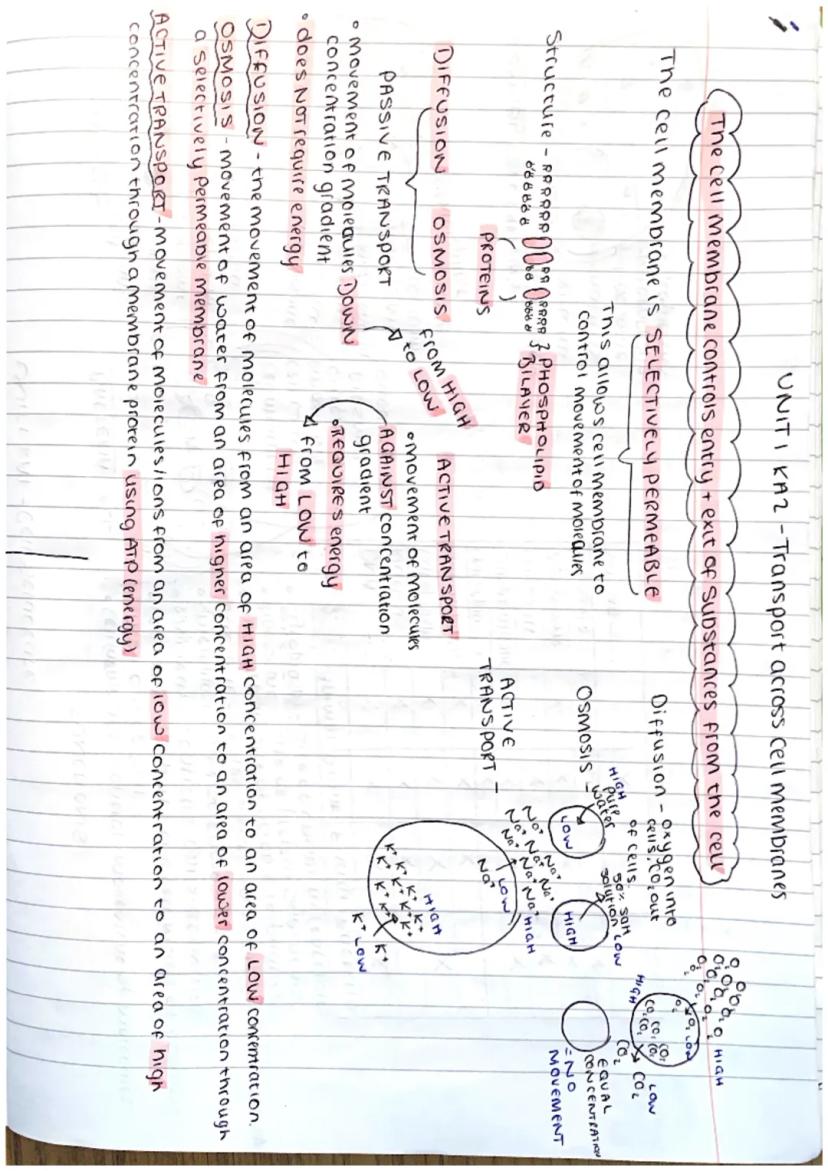 UNIT 1 KA2 - Transport across cell membranes
The cell membrane controls entry + exit of substances from the cell
The cell membrane is SELECTIVELY PERMEABLE
This allows cell membrane to
control movement of molecules
Structure -
} PHOSPHOLIPID
BILAYER
PROTEINS
DIFFUSION OSMOSIS
PASSIVE TRANSPORT
• movement of molecules DOWN
concentration gradient
• does NOT require energy
from HIGH
to LOW
ACTIVE TRANSPORT
• movement of molecules
AGAINST concentration
gradient
• REQUIRES energy
from LOW to
HIGH
Diffusion - oxygen into
cells, CO2 out
of cells.
O2 O2 O2 O2 O2 O2 HIGH
O2 LOW
HIGH CO2 CO2 CO2 CO2
CO2 CO2 LOW
Osmosis -
HIGH pure
water
LOW
50% salt
solution LOW
HIGH
EQUAL
CONCENTRATION
= NO
MOVEMENT
ACTIVE
TRANSPORT -
Na+ Na+ Na+ Na+ Na+ Na+ Na+ HIGH
Na+ LOW
HIGH
K+ K+ K+ K+ K+ K+ K+ K+
K+ K+ LOW
DIFFUSION - the movement of molecules from an area of HIGH concentration to an area of LOW concentration.
OSMOSIS - movement of water from an area of higher concentration to an area of lower concentration through
a selectively permeable membrane
ACTIVE TRANSPORT - movement of molecules/ions from an area of low concentration to an area of high
concentration through a membrane protein using ATP (energy)